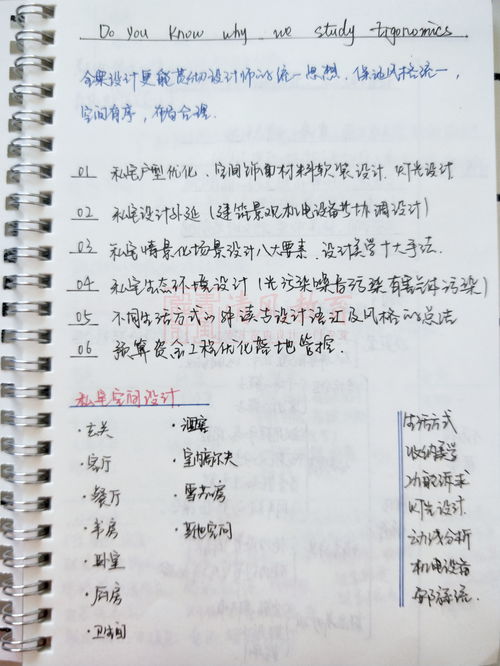 Do you know why we study Ergonomics
全案设计更能贯彻设计师的统一思想，保证风格统一，
空间有序，布局合理.
01 私宅户型优化、空间饰面材料软装设计.灯光设计
02 私宅设计外延(建筑景观机电设备协调设计)
03 私宅情景化场景设计八大要素、设计美学十大手法.
04 私宅生态环境设计(光污染噪音污染有害气体污染)
05 不同生活方式的解读与设计语言及风格的总结
06 预算资金工程优化落地管控.
私宅空间设计
·玄关
·客厅
·餐厅
·书房
·卧室
·厨房
·卫生间
·酒窖
·室内高尔夫
·雪茄房
·其他空间
生活方式
收纳美学
功能诉求
灯光设计
动线分析
机电设备